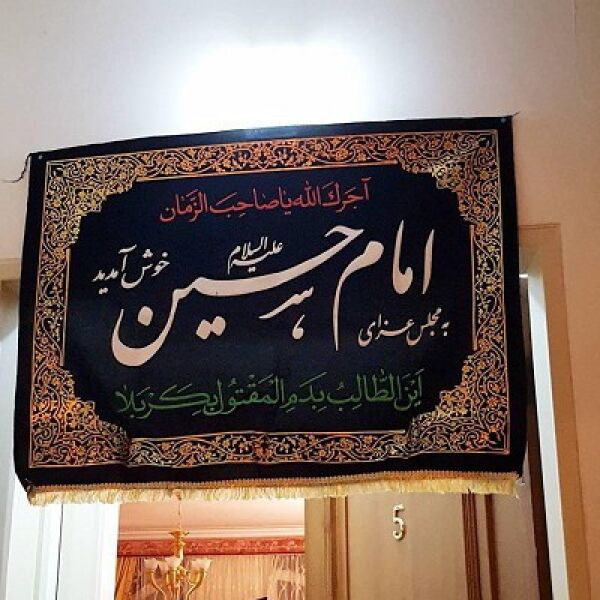 آجرك الله يا صاحب الزمان
به مجلس عزای
امام حسین
علیه السلام
خوش آمدید
این الطالب بدم المقتول بکربلا
5